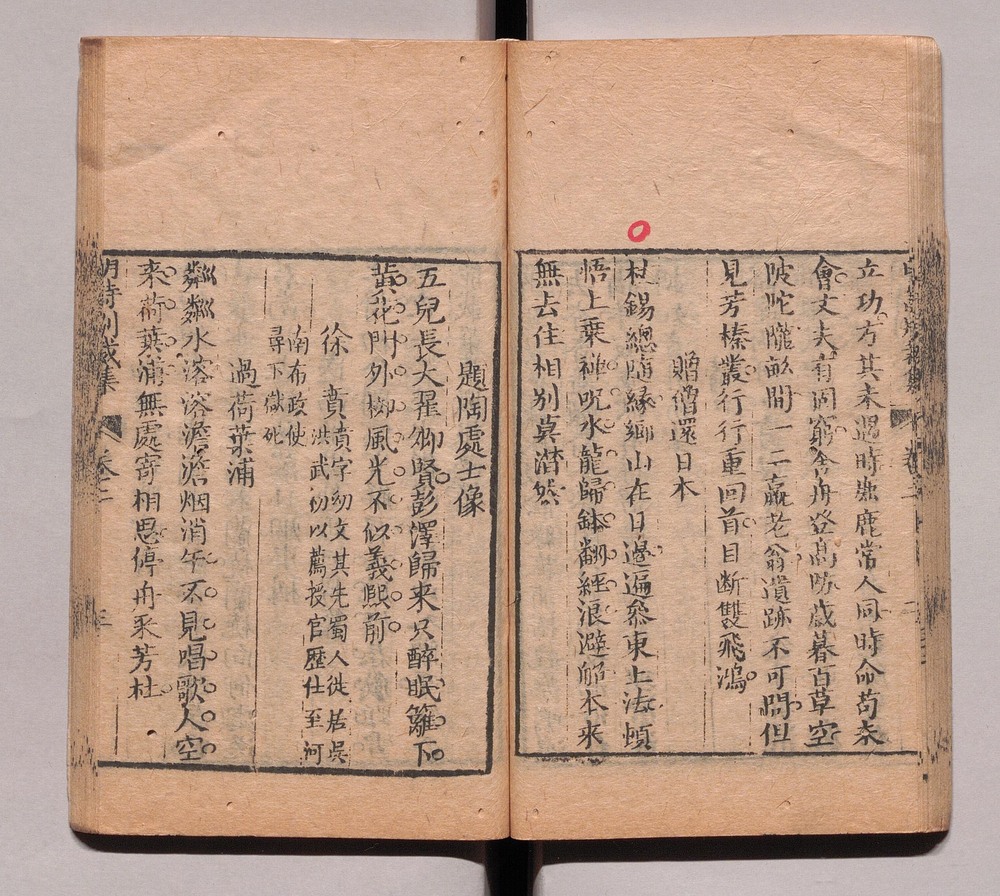 立功方其未遇時豈鹿常人同時命苟未
會丈夫有固窮舍舟登高防歲暮百草空
陂陀隴畝間一二羸老翁遺跡不可問但
見芳榛叢行行重回首目斷雙飛鴻
贈僧還日本
杖錫總隨緣鄉山在日邊遍參東土法頓
悟上乗禅呪水龍歸鉢翻經浪避船本来
無去住相别莫潸然
題陶處士像
五兒長大翟卿賢彭澤歸来只醉眠籬下
黄花門外柳風光不似義熙前
徐賁 賁字幼文其先蜀人徙居吳
洪武初以薦授官歷仕至河
南布政使
尋下獄死
過荷葉浦
粼粼水溶溶澹澹烟消午不見唱歌人空
来荷葉浦無處寄相思停舟采芳杜
明詩别裁集 卷二 三